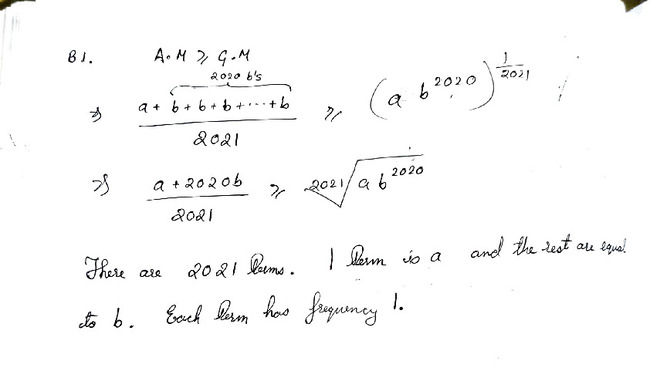 B1. A.M ≥ G.M
2020 b's
⇒ (a + b + b + b + ... + b) / 2021 ≥ (a b^2020)^(1/2021)
⇒ (a + 2020b) / 2021 ≥ 2021√(a b^2020)
There are 2021 terms. 1 term is a and the rest are equal
to b. Each term has frequency 1.